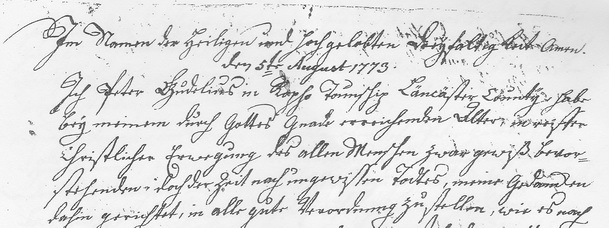 Im Namen der Heiligen und Hochgelobten Dreyfaltigkeit Amen.
den 5ten August 1773.
Ich Peter Gudelius in Rapho Township Lancaster County, habe
bey meinem durch Gottes Gnade erreichenden Alter, in reiffer
Christlicher Erwegung des allen Menschen zwar gewiß bevor-
stehenden, doch der Zeit nach ungewissen Todtes, meine Gedancken
dahin gerichtet, in alle gute Verordnung zu stellen, wie es nach